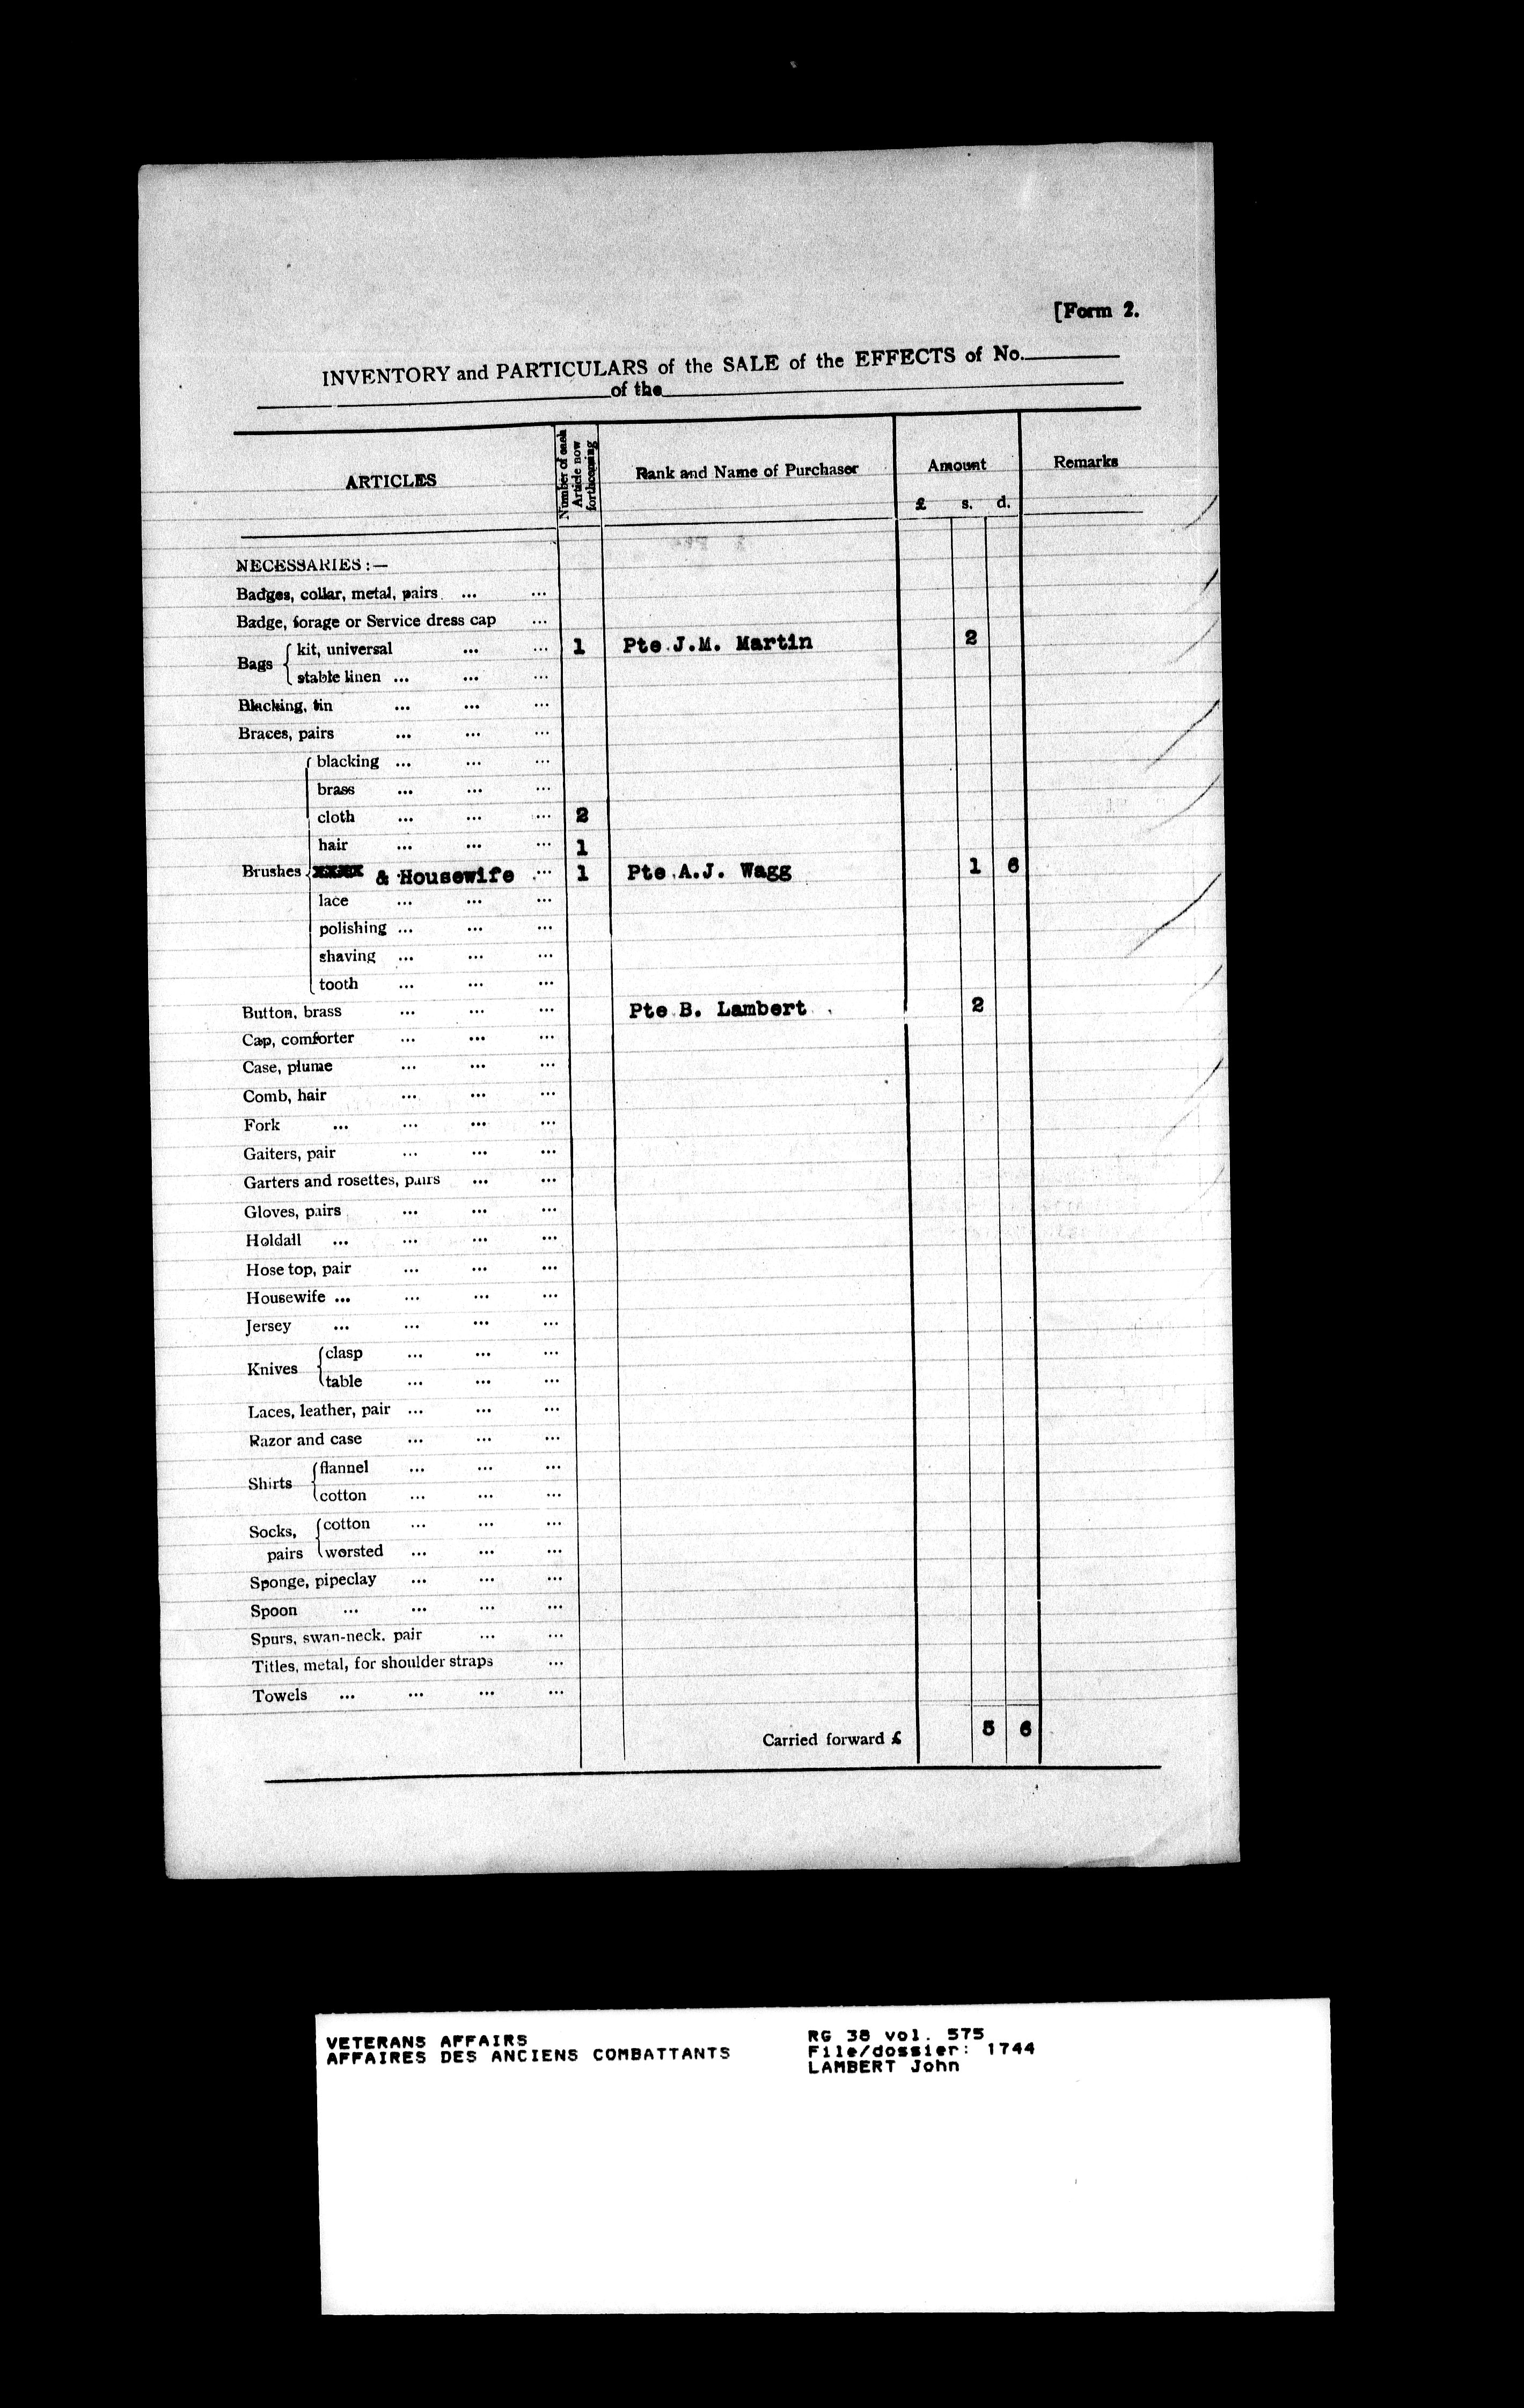 [Form 2.
INVENTORY and PARTICULARS of the SALE of the EFFECTS of No.
of the
ARTICLES Number of each Article now forthcoming Rank and Name of Purchaser Amount Remarks
£ s. d.
NECESSARIES :—
Badges, collar, metal, pairs ... ...
Badge, forage or Service dress cap ...
Bags { kit, universal ... ... 1 Pte J.M. Martin 2
stable linen ... ... ...
Blacking, tin ... ... ...
Braces, pairs ... ... ...
Brushes { blacking ... ... ...
brass ... ... ...
cloth ... ... ... 2
hair ... ... ... 1
& Housewife ... 1 Pte A.J. Wagg 1 6
lace ... ... ...
polishing ... ... ...
shaving ... ... ...
tooth ... ... ...
Button, brass ... ... ... Pte B. Lambert 2
Cap, comforter ... ... ...
Case, plume ... ... ...
Comb, hair ... ... ...
Fork ... ... ... ...
Gaiters, pair ... ... ...
Garters and rosettes, pairs ... ...
Gloves, pairs ... ... ...
Holdall ... ... ... ...
Hose top, pair ... ... ...
Housewife ... ... ... ...
Jersey ... ... ... ...
Knives { clasp ... ... ...
table ... ... ...
Laces, leather, pair ... ... ...
Razor and case ... ... ...
Shirts { flannel ... ... ...
cotton ... ... ...
Socks, pairs { cotton ... ... ...
worsted ... ... ...
Sponge, pipeclay ... ... ...
Spoon ... ... ... ...
Spurs, swan-neck, pair ... ...
Titles, metal, for shoulder straps ...
Towels ... ... ... ...
Carried forward £ 5 6
VETERANS AFFAIRS RG 38 vol. 575
AFFAIRES DES ANCIENS COMBATTANTS File/dossier: 1744
LAMBERT John